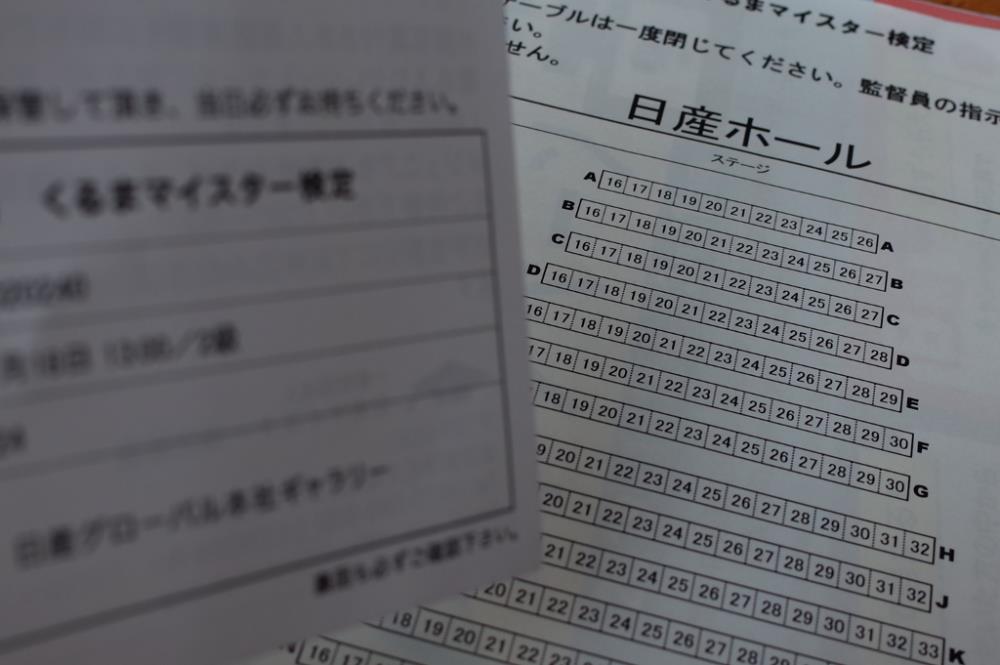 して頂き、当日必ずお持ちください。
くるまマイスター検定
日産グローバル本社ギャラリー
裏面も必ずご確認下さい。
くるまマイスター検定
ーブルは一度閉じてください。監督員の指示
い。
せん。
日産ホール
ステージ
A 16 17 18 19 20 21 22 23 24 25 26 A
B 16 17 18 19 20 21 22 23 24 25 26 27 B
C 16 17 18 19 20 21 22 23 24 25 26 27 C
D 16 17 18 19 20 21 22 23 24 25 26 27 28 D
16 17 18 19 20 21 22 23 24 25 26 27 28 29 E
17 18 19 20 21 22 23 24 25 26 27 28 29 30 F
18 19 20 21 22 23 24 25 26 27 28 29 30 G
19 20 21 22 23 24 25 26 27 28 29 30 31 32 H
20 21 22 23 24 25 26 27 28 29 30 31 32 J
21 22 23 24 25 26 27 28 29 30 31 32 33 K
20 21 22 23 24 25 26 27 28 29 30
18 19 20 21 22 23 24 25 26 27
16 17